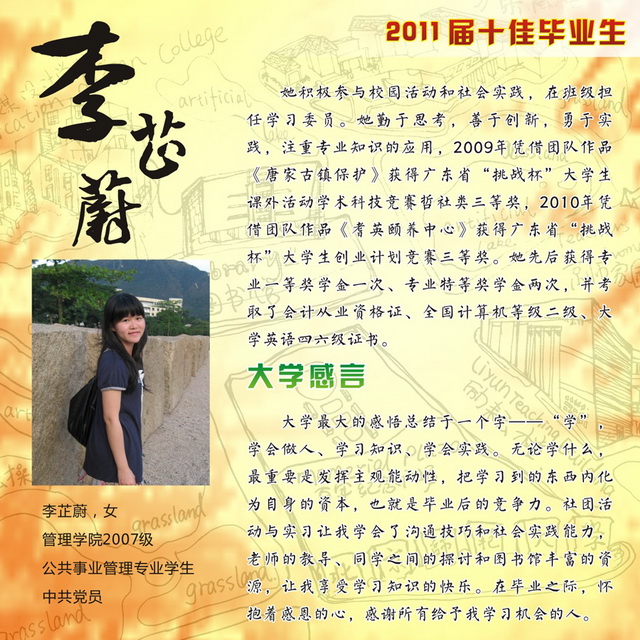 2011届十佳毕业生
李芷蔚
她积极参与校园活动和社会实践，在班级担
任学习委员。她勤于思考，善于创新，勇于实
践，注重专业知识的应用，2009年凭借团队作品
《唐家古镇保护》获得广东省“挑战杯”大学生
课外活动学术科技竞赛哲社类三等奖，2010年凭
借团队作品《耆英颐养中心》获得广东省“挑战
杯”大学生创业计划竞赛三等奖。她先后获得专
业一等奖学金一次、专业特等奖学金两次，并考
取了会计从业资格证、全国计算机等级二级、大
学英语四六级证书。
大学感言
大学最大的感悟总结于一个字——“学”，
学会做人、学习知识、学会实践。无论学什么，
最重要是发挥主观能动性，把学习到的东西内化
为自身的资本，也就是毕业后的竞争力。社团活
动与实习让我学会了沟通技巧和社会实践能力，
老师的教导、同学之间的探讨和图书馆丰富的资
源，让我享受学习知识的快乐。在毕业之际，怀
抱着感恩的心，感谢所有给予我学习机会的人。
李芷蔚，女
管理学院2007级
公共事业管理专业学生
中共党员
College
artificial
library
Liyun Teaching
grassland
grassland
grassland